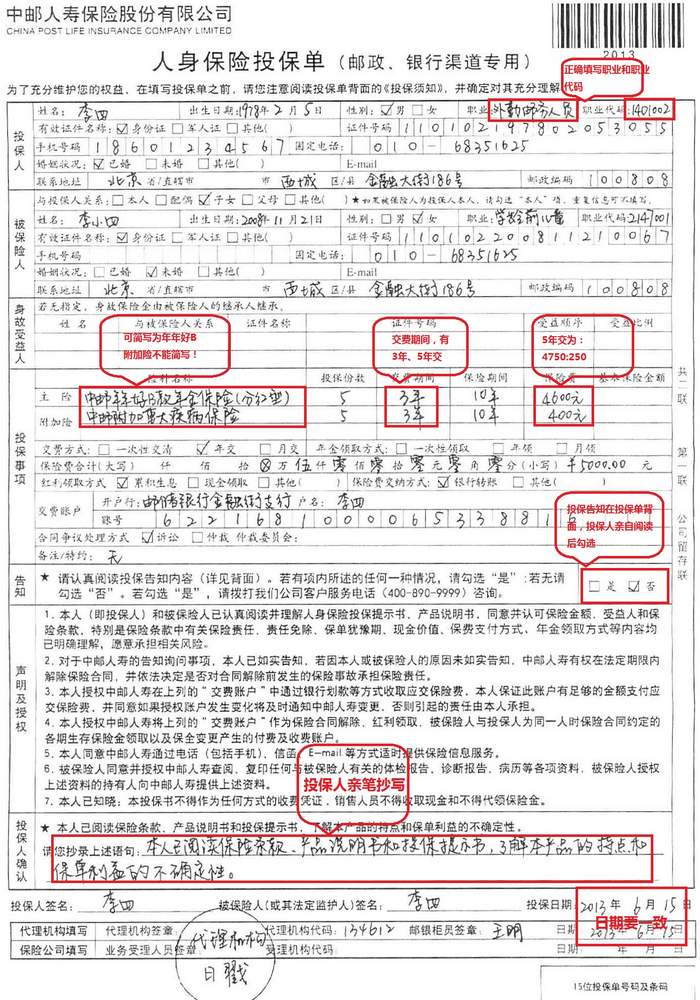 中邮人寿保险股份有限公司
CHINA POST LIFE INSURANCE COMPANY LIMITED
2013
人身保险投保单（邮政、银行渠道专用）
正确填写职业和职业代码
为了充分维护您的权益，在填写投保单之前，请您注意阅读投保单背面的《投保须知》，并确定对其充分理解
投保人
姓名：李四 出生日期:1978年2月5日 性别：☑男 □女 职业 外勤邮务人员 职业代码:1401002
有效证件名称：☑身份证 □军人证 □其他( ) 证件号码 110102197802053055
手机号码 18601234567 固定电话： 010-68351625
婚姻状况：☑已婚 □未婚 □其他( ) E-mail
联系地址 北京 省/直辖市 市 西城 区/县 金融大街186号 邮政编码 100808
被保险人
与投保人关系：□本人 □配偶 ☑子女 □父母 □其他( ) ★如果被保险人为投保人本人，请勾选“本人”项，重复信息可不填写。
姓名：李小四 出生日期:2008年11月21日 性别：□男 ☑女 职业：学龄前儿童 职业代码:2147001
有效证件名称：☑身份证 □军人证 □其他( ) 证件号码 110102200811210067
手机号码 固定电话： 010-68351625
婚姻状况：□已婚 ☑未婚 □其他( ) E-mail
联系地址 北京 省/直辖市 市 西城 区/县 金融大街186号 邮政编码 100808
身故受益人
若无指定，身故保险金由被保险人的继承人继承。
姓名 与被保险人关系 证件名称 证件号码 受益顺序 受益比例
可简写为年年好B
附加险不能简写！
交费期间，有3年、5年交
5年交为：
4750:250
投保事项
险种名称 投保份数 交费期间 保险期间 保险费 基本保险金额
主险 中邮年年好B款年金保险(分红型) 5 3年 10年 4600元
附加险 中邮附加重大疾病保险 5 3年 10年 400元
交费方式：□一次性交清 ☑年交 □月交 年金领取方式：□一次性领取 □年领 □月领
保险费合计(大写) 仟 佰 拾 ⊗万 伍仟 零佰 零拾 零元 零角 零分(小写) ¥5000.00 元
红利领取方式 ☑累积生息 □现金领取 □其他( ) 保险费交纳方式：☑银行转账 □其他( )
交费账户
开户行：邮储银行金融街支行 户名：李四
账号 622168100006533881
合同争议处理方式 ☑诉讼 □仲裁 仲裁委员会：
备注/特约：无
投保告知在投保单背面，投保人亲自阅读后勾选
告知
★ 请认真阅读投保告知内容（详见背面）。若有项内所述的任何一种情况，请勾选“是”；若无请勾选“否”。若勾选“是”，请拨打我们公司客户服务电话（400-890-9999）咨询。
□是 ☑否
声明及授权
1．本人（即投保人）和被保险人已认真阅读并理解人身保险投保提示书、产品说明书，同意并认可保险金额、受益人和保
险条款，特别是保险条款中有关保险责任、责任免除、保单犹豫期、现金价值、保费支付方式、年金领取方式等内容均
已明确理解，愿意承担相关风险。
2．对于中邮人寿的告知询问事项，本人已如实告知，若因本人或被保险人的原因未如实告知，中邮人寿有权在法定期限内
解除保险合同，并依法决定是否对合同解除前发生的保险事故承担保险责任。
3．本人授权中邮人寿在上列的“交费账户”中通过银行划款等方式收取应交保险费，本人保证此账户有足够的金额支付应
交保险费，并同意如果授权账户发生变化将及时通知中邮人寿变更，否则引起的责任由本人承担。
4．本人授权中邮人寿将上列的“交费账户”作为保险合同解除、红利领取，被保险人与投保人为同一人时保险合同约定的
各期生存保险金领取以及保全变更产生的付费及收费账户。
5．本人同意中邮人寿通过电话（包括手机）、信函、E-mail等方式适时提供保险信息服务。
6．被保险人同意并授权中邮人寿查阅、复印任何与被保险人有关的体检报告、诊断报告、病历等各项资料，被保险人授权
上述资料的持有人向中邮人寿提供上述资料。
7．本人已知晓：本投保书不得作为任何方式的收费凭证，销售人员不得收取现金和不得代领保险金。
投保人亲笔抄写
投保人确认
★ 本人已阅读保险条款、产品说明书和投保提示书，了解本产品的特点和保单利益的不确定性。
请您抄录上述语句：本人已阅读保险条款、产品说明书和投保提示书，了解本产品的特点和
保单利益的不确定性。
投保人签名：李四 被保险人(或其法定监护人)签名：李四 投保日期：2013年6月15日
代理机构填写 代理机构签章： 代理机构代码：134612 邮银柜员签章：王明 日期：2013年6月15日
日期要一致
保险公司填写 业务受理人员签章： 受理机构代码： 日期： 年 月 日
代理机构
日戳
15位投保单号码及条码
共二联
第一联
公司留存联